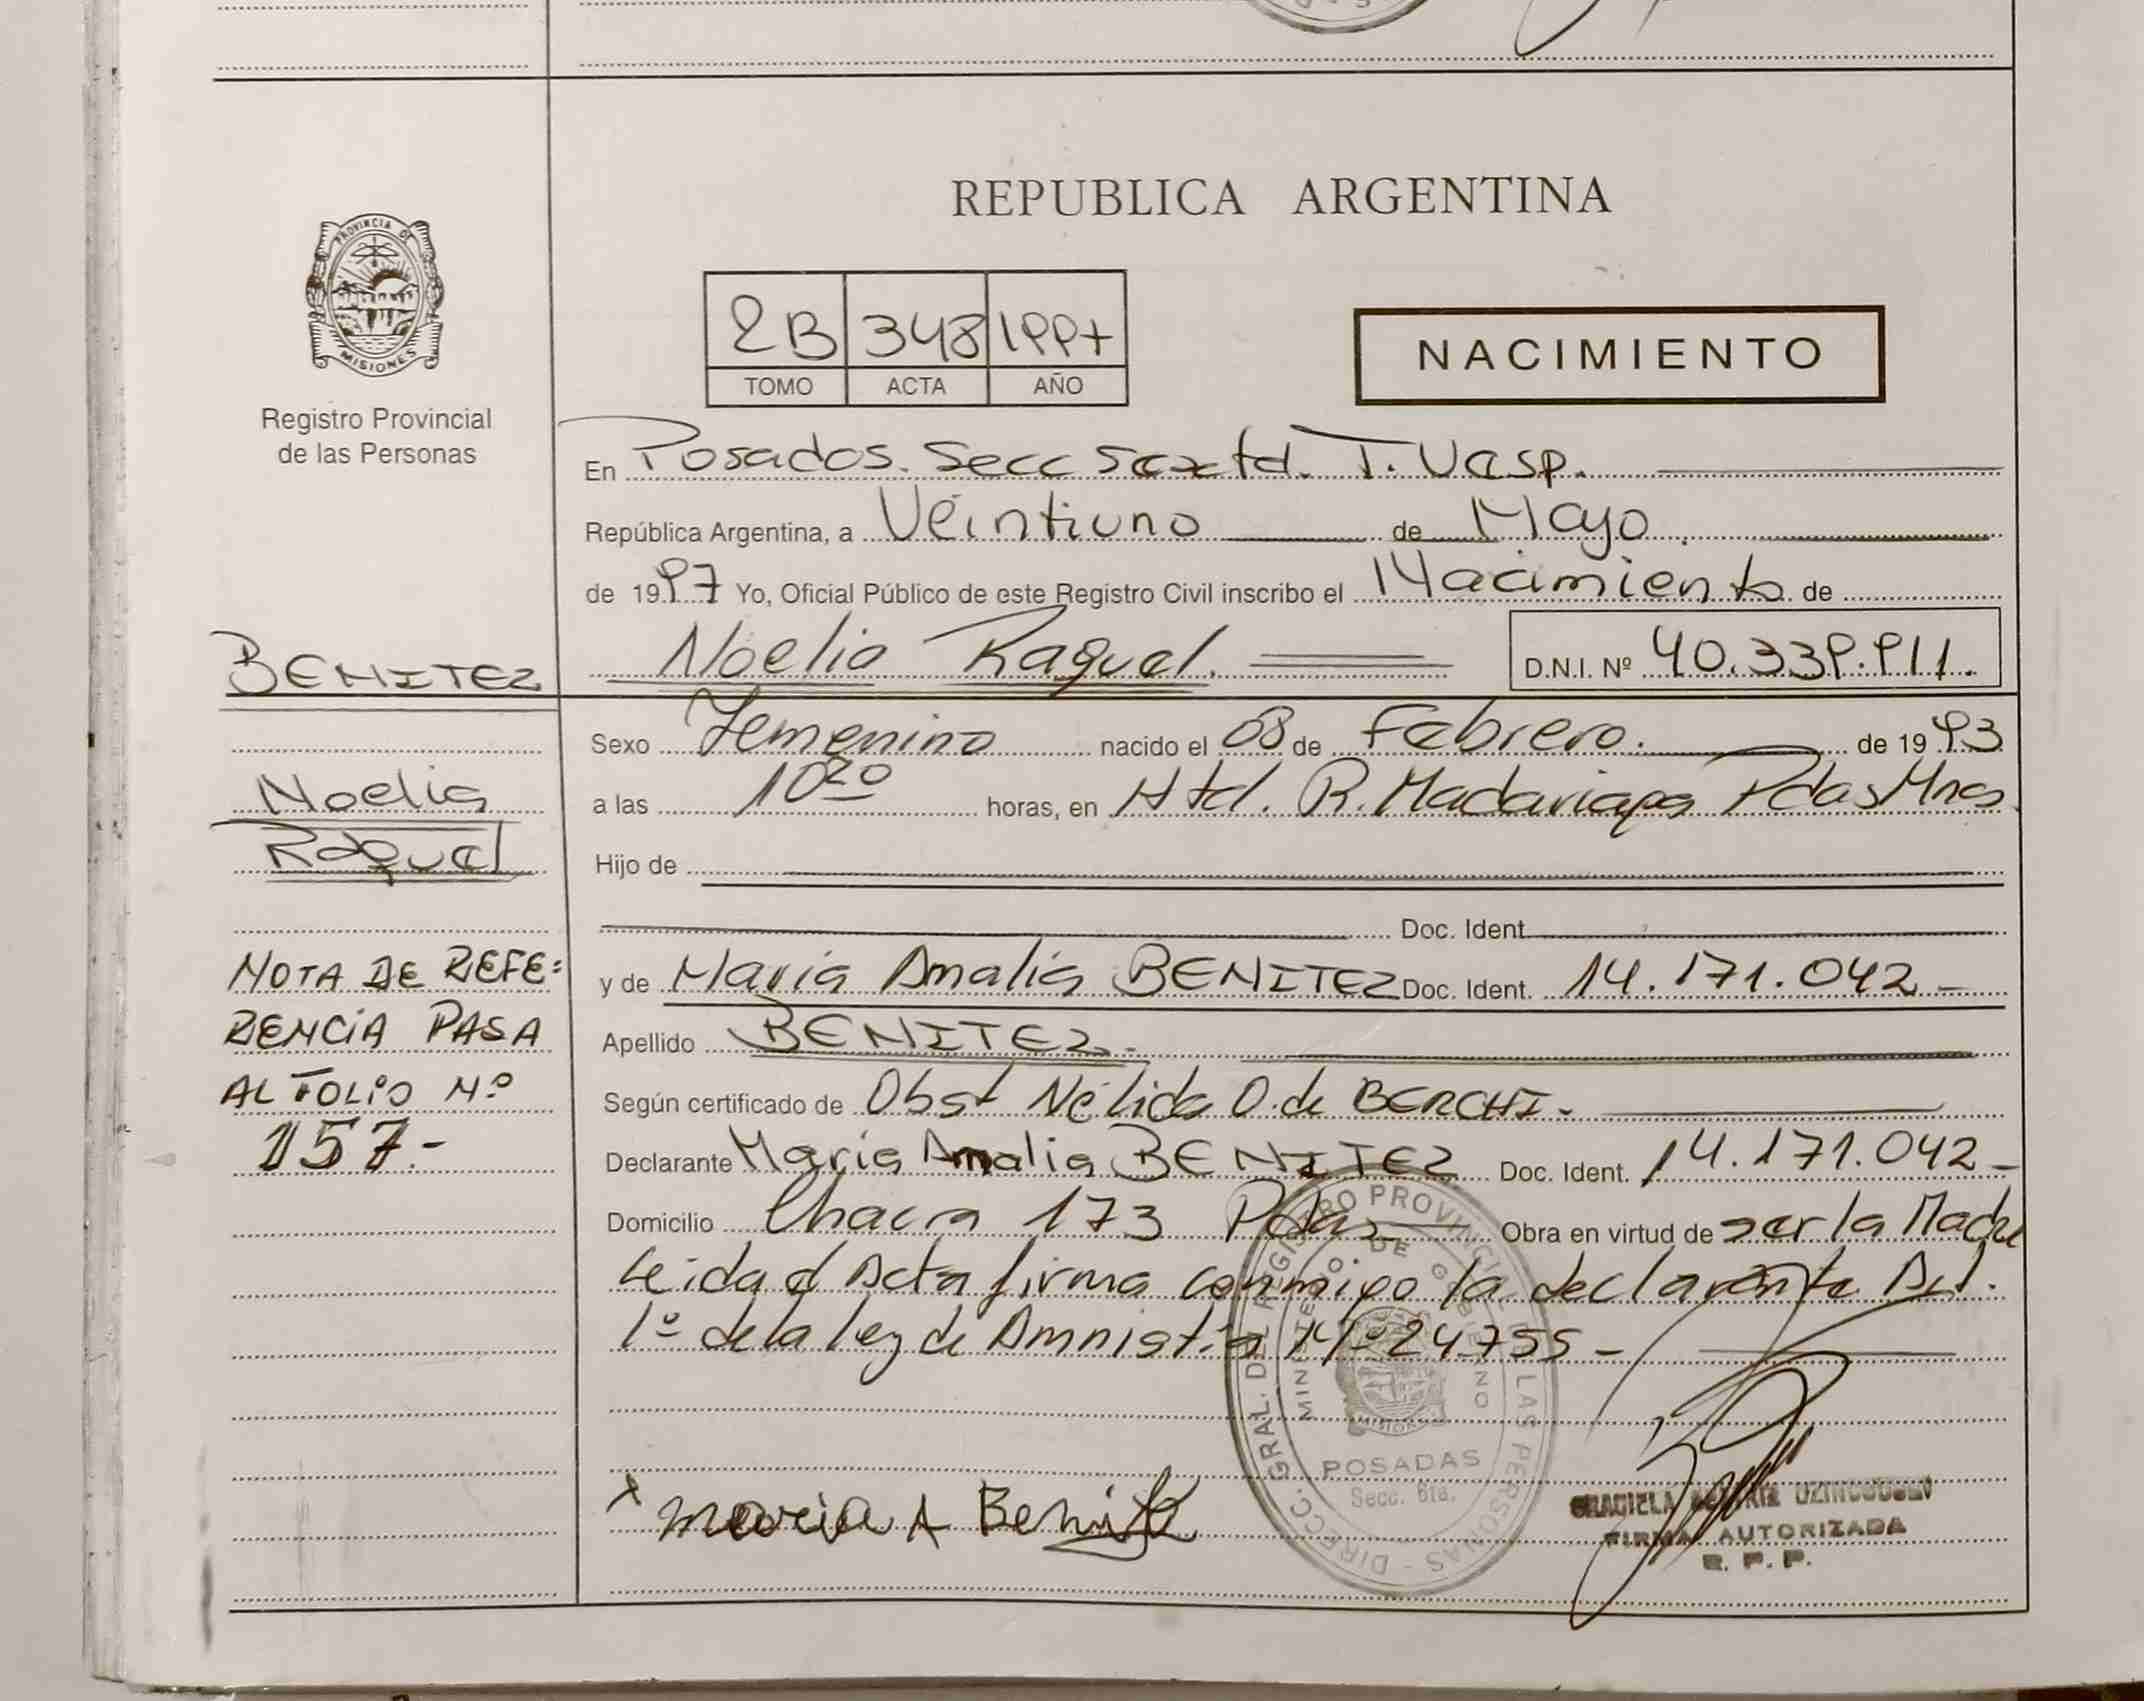 REPUBLICA ARGENTINA
PROVINCIA DE
MISIONES
Registro Provincial
de las Personas
2B 348 1997
TOMO ACTA AÑO
NACIMIENTO
En Posadas. Secc Sexta. T. Vesp.
República Argentina, a Veintiuno de Mayo.
de 1997 Yo, Oficial Público de este Registro Civil inscribo el Nacimiento de
BENITEZ
Noelia Raquel.
D.N.I. Nº 40.339.911.
Sexo Femenino nacido el 08 de Febrero. de 1993
Noelia
Raquel
a las 10 20 horas, en Htal. R. Madariaga Pdas Mnes.
Hijo de
Doc. Ident.
NOTA DE REFE=
RENCIA PASA
AL FOLIO Nº
157.-
y de Maria Amalia BENITEZ Doc. Ident. 14.171.042 -
Apellido BENITEZ.-
Según certificado de Obst Nélida O. de BERCHI.-
Declarante Maria Amalia BENITEZ Doc. Ident. 14.171.042 -
Domicilio Chacra 173 Pdas Obra en virtud de ser la Madre
Leida el Acta firma conmigo la declarante Art.
1º de la ley de Amnistia Nº 24755 -
DIRECC. GRAL. DEL REGISTRO PROVINCIAL DE LAS PERSONAS
MINISTERIO DE GOBIERNO
MISIONES
POSADAS
Secc. 6ta.
x Maria A Benitez
GRACIELA
FIRMA AUTORIZADA
R. P. P.